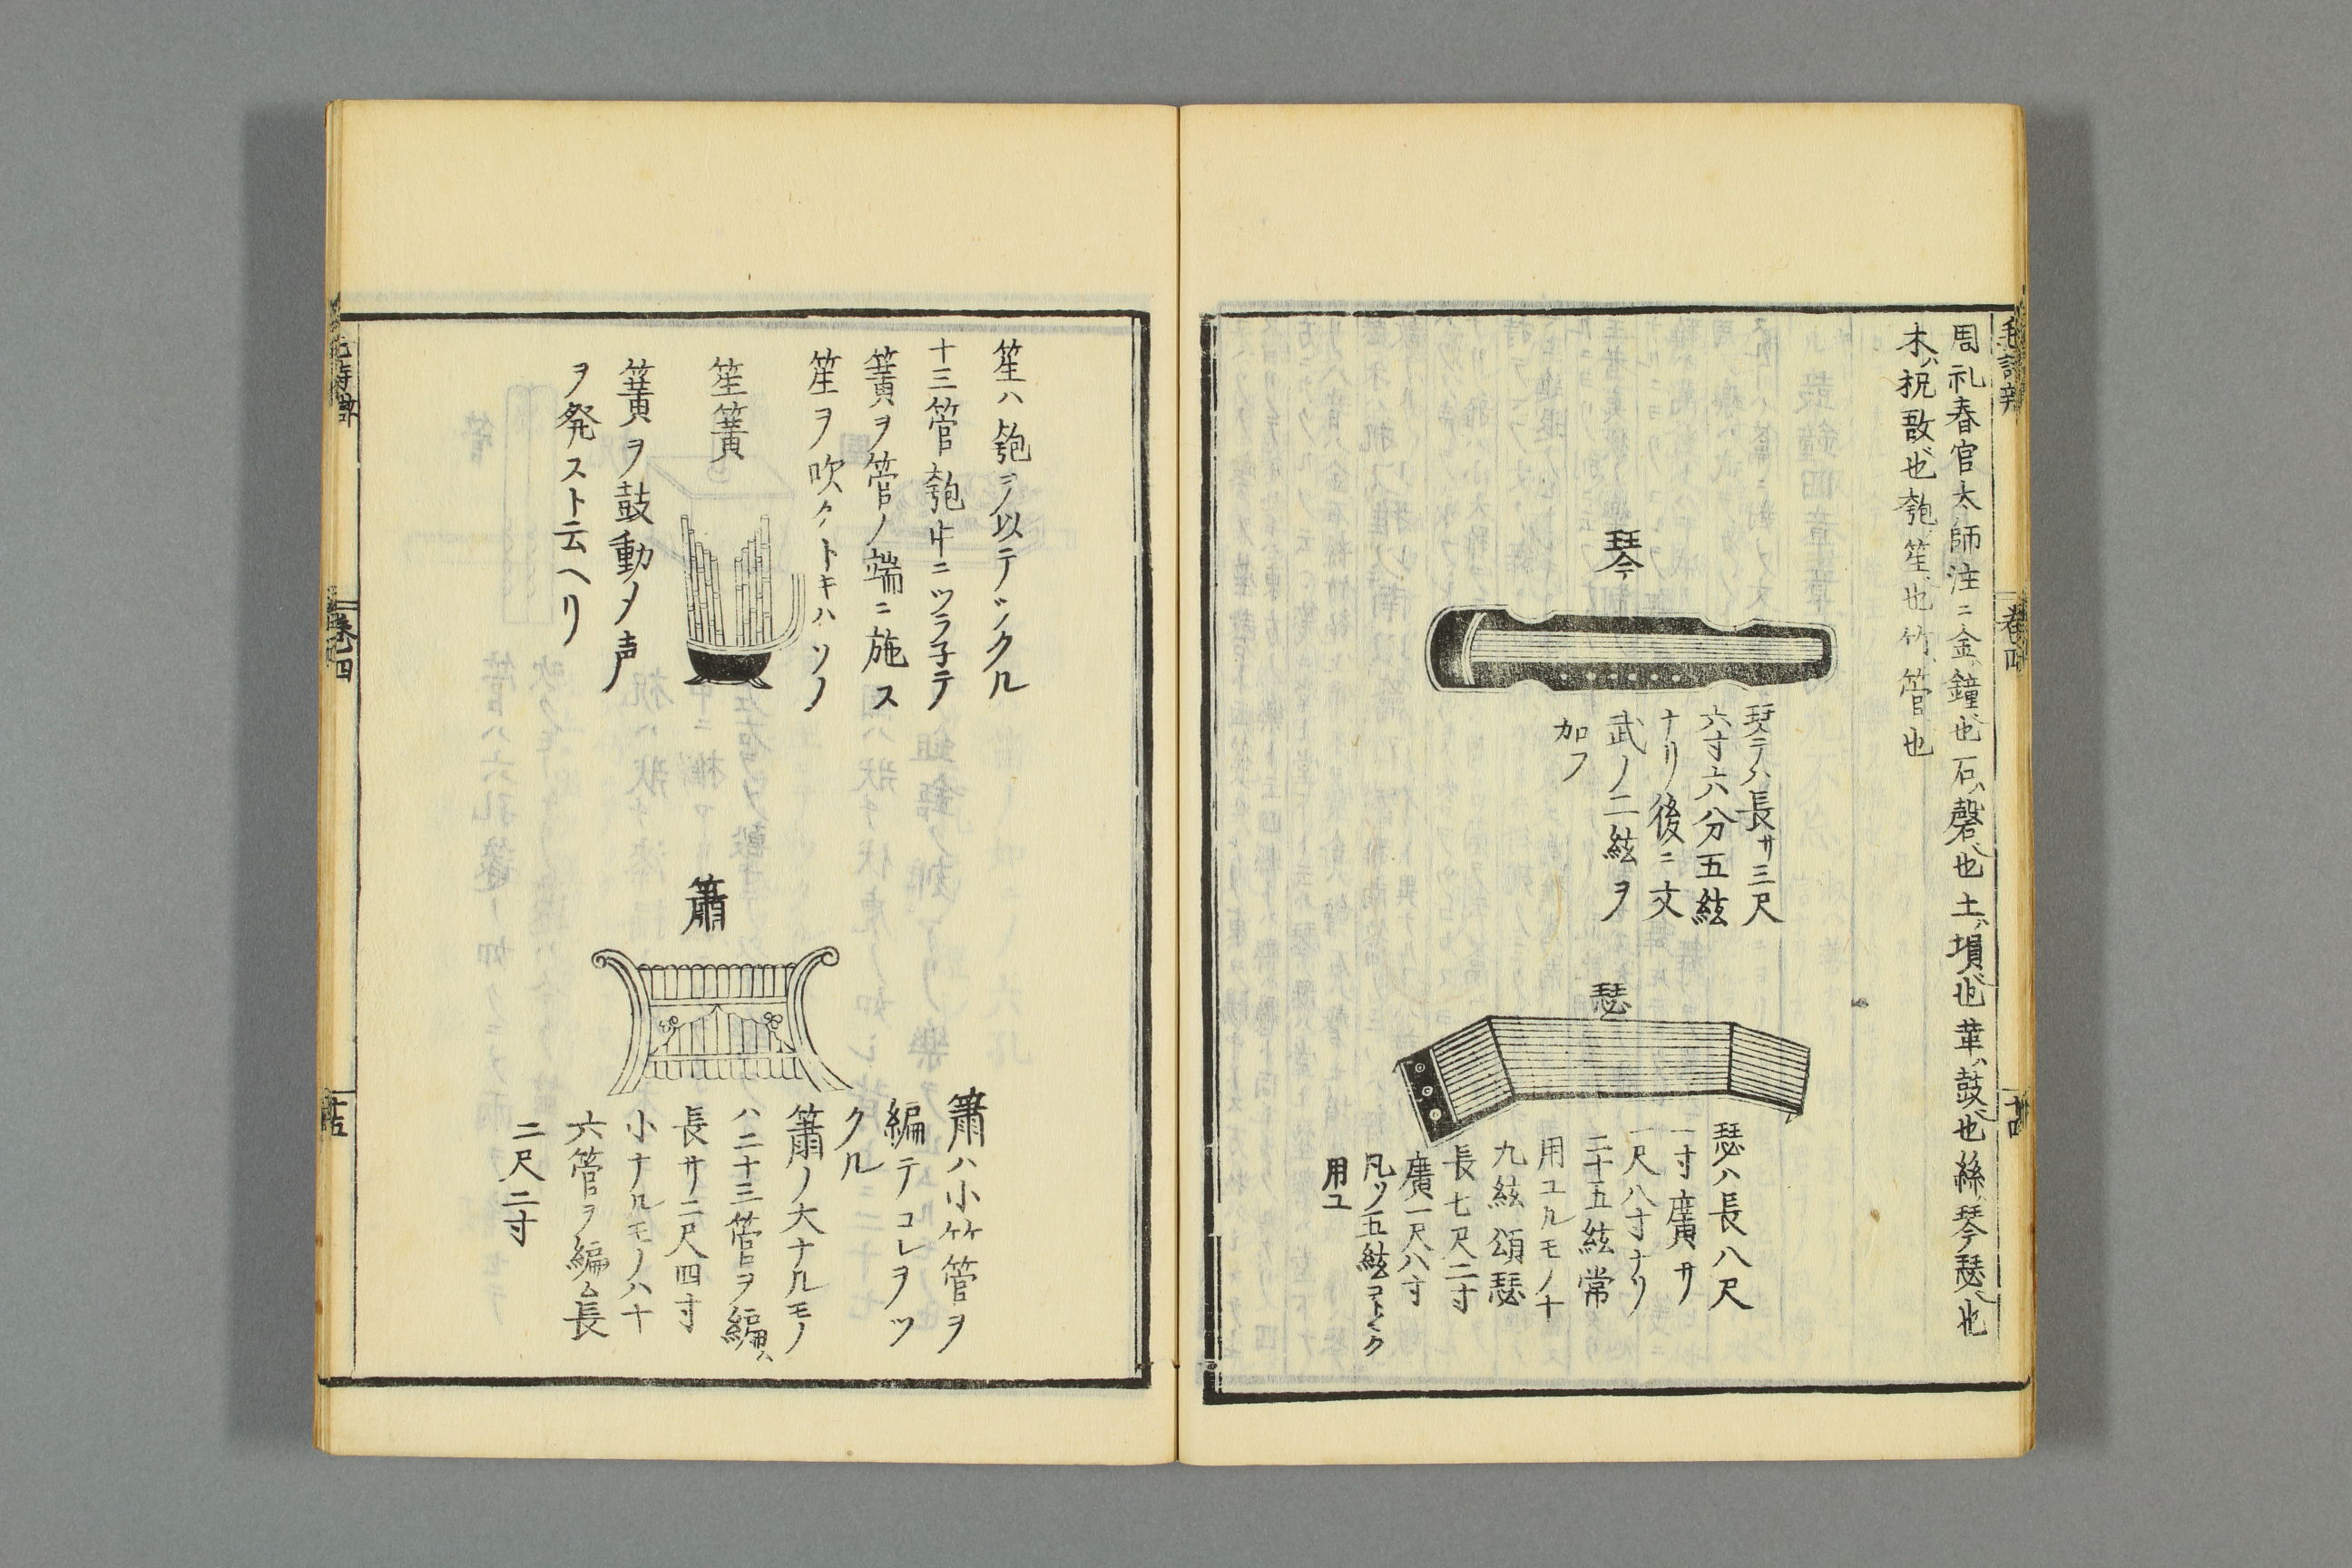 周礼春官太師注ニ金ハ鐘也石ハ磬也土ハ塤也革ハ鼓也絲ハ琴瑟也
木ハ柷敔也匏ハ笙也竹ハ管也
琴
琴ハ長サ三尺
六寸六分五絃
ナリ後ニ文
武ノ二絃ヲ
加フ
瑟
瑟ハ長八尺
一寸廣サ
一尺八寸ナリ
二十五絃常
用ユルモノ十
九絃頌瑟
長七尺二寸
廣一尺八寸
凡ソ五絃コト〱ク
用ユ
卷四
笙ハ匏ヲ以テツクル
十三管匏中ニツラ子テ
簧ヲ管ノ端ニ施ス
笙ヲ吹クトキハソノ
笙簧
簧ヲ鼓動メ声
ヲ発スト云ヘリ
簫
簫ハ小竹管ヲ
編テコレヲツ
クル
簫ノ大ナルモノ
ハ二十三管ヲ編ム
長サ二尺四寸
小ナルモノハ十
六管ヲ編ム長
二尺二寸
卷四